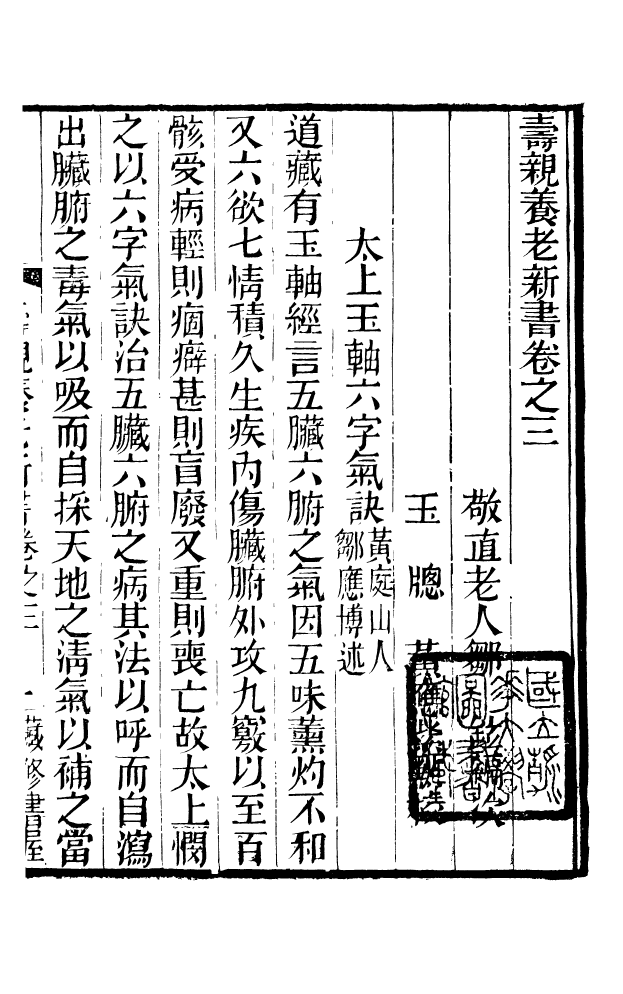 壽親養老新書卷之三
敬直老人鄒
玉牕黃
太上玉軸六字氣訣黃庭山人鄒應博述
道藏有玉軸經言五臟六腑之氣因五味薰灼不和
又六欲七情積久生疾內傷臟腑外攻九竅以至百
骸受病輕則痼癖甚則盲廢又重則喪亡故太上憫
之以六字氣訣治五臟六腑之病其法以呼而自瀉
出臟腑之毒氣以吸而自採天地之淸氣以補之當
壽親養老新書卷之三 一 藏修書屋